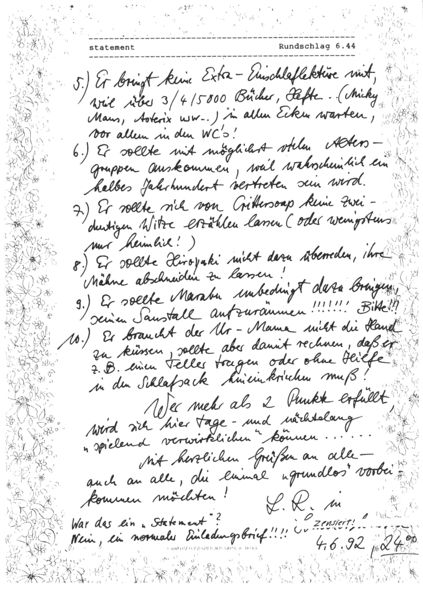 statement Rundschlag 6.44
5.) Er bringt keine Extra-Einschlaflektüre mit,
weil über 3/4/5000 Bücher, Hefte.. (Micky
Maus, Asterix usw..) in allen Ecken warten,
vor allem in den WC's!
6.) Er sollte mit möglichst vielen Alters-
gruppen auskommen, weil wahrscheinlich ein
halbes Jahrhundert vertreten sein wird.
7.) Er sollte sich von Crittersoap keine zwei-
deutigen Witze erzählen lassen (oder wenigstens
nur heimlich!)
8.) Er sollte Hiropaki nicht dazu überreden, ihre
Mähne abschneiden zu lassen!
9.) Er sollte Marabu unbedingt dazu bringen,
seinen Saustall aufzuräumen!!!!!!! Bitte!!!
10.) Er braucht der Ur-Mama nicht die Hand
zu küssen, sollte aber damit rechnen, daß er
z.B. einen Teller tragen oder ohne Hilfe
in den Schlafsack hineinkriechen muß!
Wer mehr als 2 Punkte erfüllt,
wird sich hier tage- und nächtelang
"spielend verwirklichen" können......
Mit herzlichen Grüßen an alle—
auch an alle, die einmal "grundlos" vorbei-
kommen möchten!
L. R. in
War das ein "Statement"? (Zensiert!)
Nein, ein normaler Einladungsbrief!!!!
4.6.92, 24⁰⁰